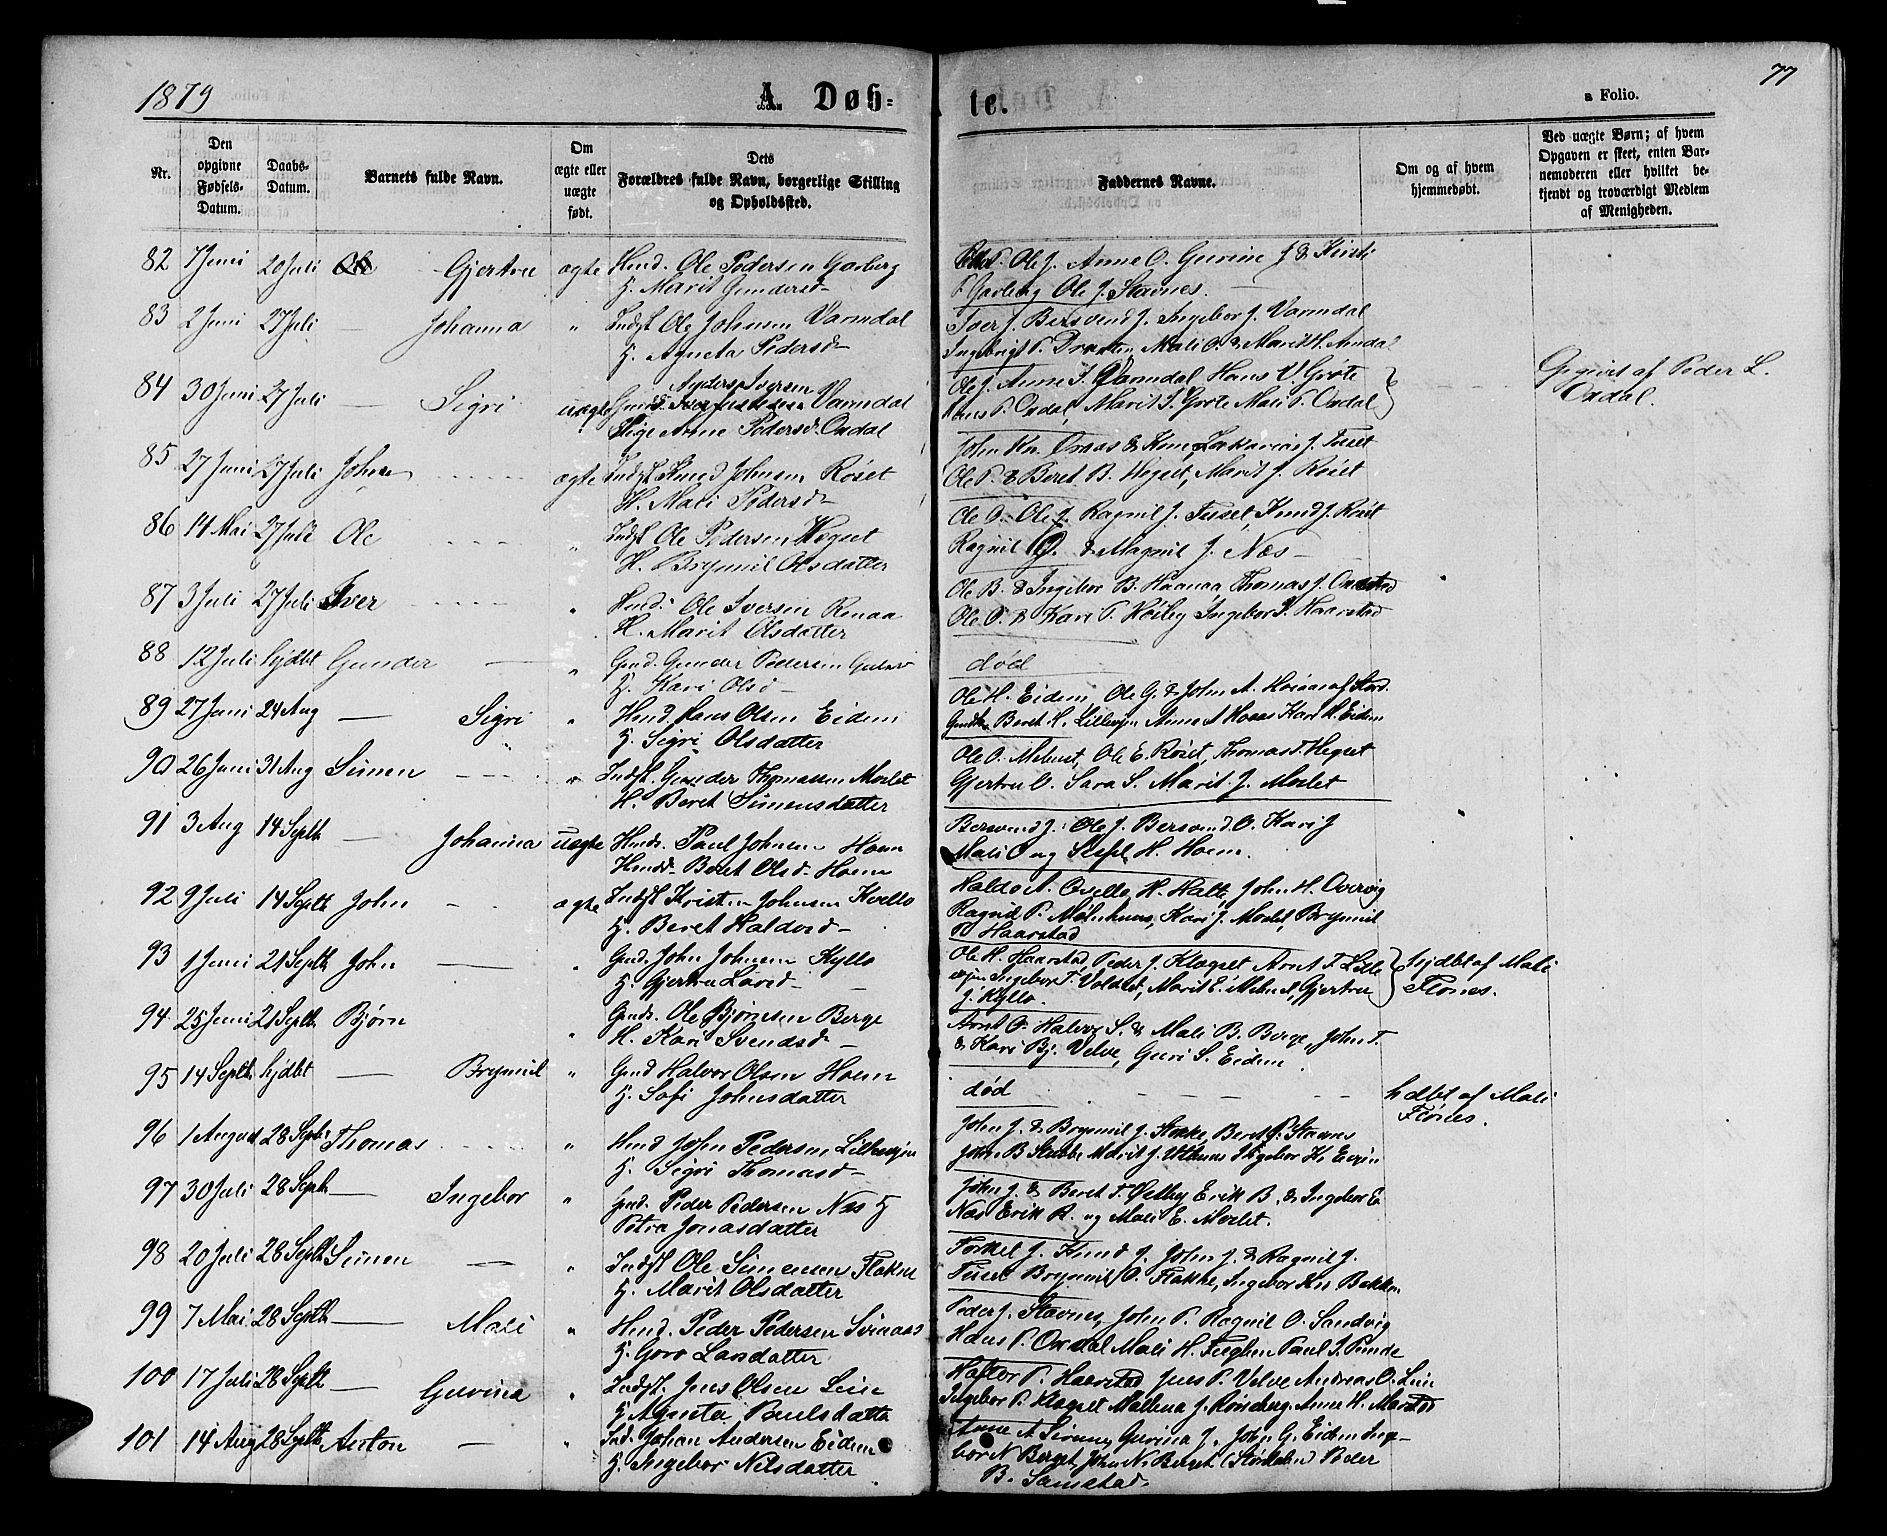 1879
A. Døb-
te.
77
a Folio.
Nr.
Den opgivne Fødsels-Datum.
Daabs-Datum.
Barnets fulde Navn.
Om ægte eller uægte født.
Dets Forældres fulde Navn, borgerlige Stilling og Opholdssted.
Faddernes Navne.
Om og af hvem hjemmedøbt.
Ved uægte Børn; af hvem Opgaven er skeet, enten Barnemoderen eller hvilket bekjendt og troværdigt Medlem af Menigheden.
82 1 Juni 20 Juli Gjertru ægte Hmd. Ole Pedersen Garberg
H. Marit Gundersd
Ole J. Anne O. Gurine J & Kirsti
P. Garberg Ole J. Stavnes.
83 2 Juni 27 Juli Johanna " Indst Ole Johnsen Varmdal
H. Agneta Pedersd
Iver J. Bersvend J. Ingebor J. Varmdal
Ingebrigt P. Mali O. & Marit H. Aundal
84 30 Juni 27 Juli Sigri uægte Anders Iversen Varmdal
Pige Anne Pedersd. Oxdal
Ole J. Anne I. Varmdal Hans V Grøte
Hans P. Oxdal, Marit I. Grøte Mali P. Oxdal
Opgivet af Peder L.
Oxdal.
85 27 Juni 27 Juli John ægte Indst Knud Johnsen Roset
H. Mali Pedersd
John Kn. & Kone, Zakkarias J. Tuset
Ole P. & Beret B. Hegset, Marit J. Roset
86 14 Mai 27 Juli Ole " Indst Ole Pedersen Hegset
H. Brynnil Olsdatter
Ole O. Ole J. Ragnil J. Tuset, Knud J. Roset
Ragnil & Magnil J. Næs
87 3 Juli 27 Juli Iver " Hmd. Ole Iversen Renaa
H. Marit Olsdatter
Ole B. & Ingebor B. Haanaa Thomas J.
Ole O. & Kari P. Høiby Ingebor I. Haarstad
88 12 Juli hjdbt Gunder " Gmd. Gunder Pedersen
H. Kari Olsd
død
89 27 Juni 24 Aug Sigri " Hmd Hans Olsen Eidem
H. Sigri Olsdatter
Ole H. Eidem, Ole G. & John A.
Beret H. Lillevjen Anne A Kari H. Eidem
90 26 Juni 31 Aug Simen " Indst. Gunder Thomassen Moslet
H. Beret Simensdatter
Ole O. Ole E. Roset, Thomas T. Hegset
Gjertru O. Sara S. Marit J. Moslet
91 3 Aug 14 Septb Johanna uægte Hmds. Paul Johnsen Hoem
Hmds. Beret Olsd. Hoem
Bersvend J. Ole J. Bersvend O. Kari J
Mali O og H. Hoem.
92 9 Juli 14 Septb John ægte Indst Kristen Johnsen Kvello
H. Beret Haldosd
H. Halte, John H. Overvig
Ragnil P. Kari J. Moslet, Brynnil
P. Haarstad
93 1 Juni 21 Septb John " Gmd. John Johnsen Kyllo
H. Gjertru Larsd
Ole H. Haarstad, Peder J. Klegset Arnt T. Lille
vjen Ingebor T. Marit E. Gjertru
J. Kyllo.
hjdbt af Mali
Flones.
94 25 Juni 21 Septb Bjørn " Gmd. Ole Bjørnsen Berge
H. Kari Svendsd
Arnt O. Halvor S. & Mali B. Berge, John T.
& Kari Bj. Velve, Guri S. Eidem
95 14 Septb hjdbt Brynnil " Gmd Halvor Olsen Hoem
H. Sofi Johnsdatter
død
hdbt af Mali
Flones.
96 1 August 28 Septbr Thomas " Hmd John Pedersen Lillevjen
H. Sigri Thomasd
John J. & Brynnil J. Stokke, Beret P. Stavnes
John B Marit J. Ingebor
97 30 Juli 28 Septb Ingebor " Gmd. Peder Pedersen Næs H
Petra Jonasdatter
John J. & Beret T. Østby Erik B. & Ingebor E.
Næs Erik R. og Mali E. Moslet.
98 20 Juli 28 Septb Simen " Indst Ole Simensen Flakne
H. Marit Olsdatter
Torkel J. Knud J. John J. & Ragnil J.
Tuset Brynnil O. Flakne, Ingebor Kn Bakken
99 7 Mai 28 Septb Mali " Hmd. Peder Pedersen Svinaas
H. Goro Larsdatter
Peder J. Stavnes, John P. Ragnil O. Sandvig
Hans P. Oxdal Mali H. Fuglem Paul
100 17 Juli 28 Septb Gurina " Indst. Jens Olsen Lein
H. Agneta Paulsdatter
P. Haarstad Jens P. Velve Andreas O. Lein
Ingebor P. Klegset J. Rønsberg, Anne H.
101 14 Aug 28 Septb Anton " Ind. Johan Andersen Eidem
H. Ingebor Nilsdatter
Anne A Gurina J. John G. Eidem Inge-
bor N Berget, John N. Berget (Stördalen) Peder
B. Samstad